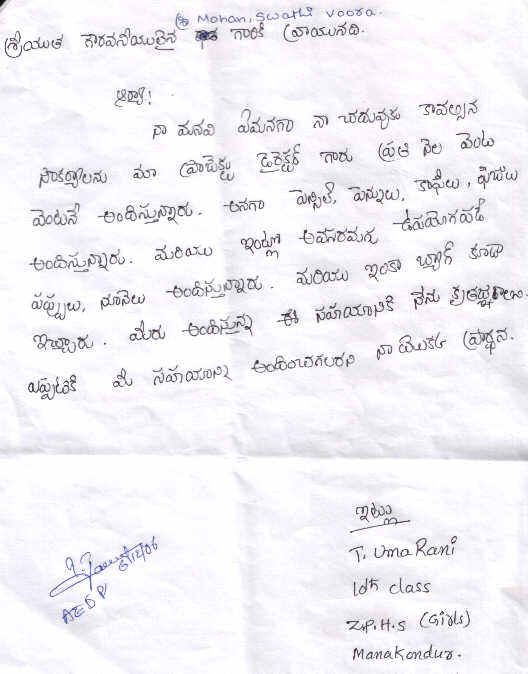 Mohan, Swathi Voora.
శ్రీయుత గౌరవనీయులైన గారికి వ్రాయునది.
ఆర్యా!
నా మనవి ఏమనగా నా చదువుకు కావల్సిన
సౌకర్యాలను మా ప్రాజెక్టు డైరెక్టర్ గారు ప్రతి నెల వెంట
వెంటనే అందిస్తున్నారు. అనగా పెన్సిల్, పెన్నులు, కాఫీలు, ఫీజులు
అందిస్తున్నారు. మరియు ఇంట్లో అవసరమగు ఉపయోగపడే
పప్పులు, నూనెలు అందిస్తున్నారు. మరియు ఇంకా బ్యాగ్ కూడా
ఇచ్చారు. మీరు అందిస్తున్న ఈ సహయానికి నేను
ఎప్పటికి మీ సహయాన్ని అందించగలరని నా యొక్క ప్రార్థన.
ఇట్లు
T. Uma Rani
10th class
Z.P.H.S (Girls)
Manakondur.